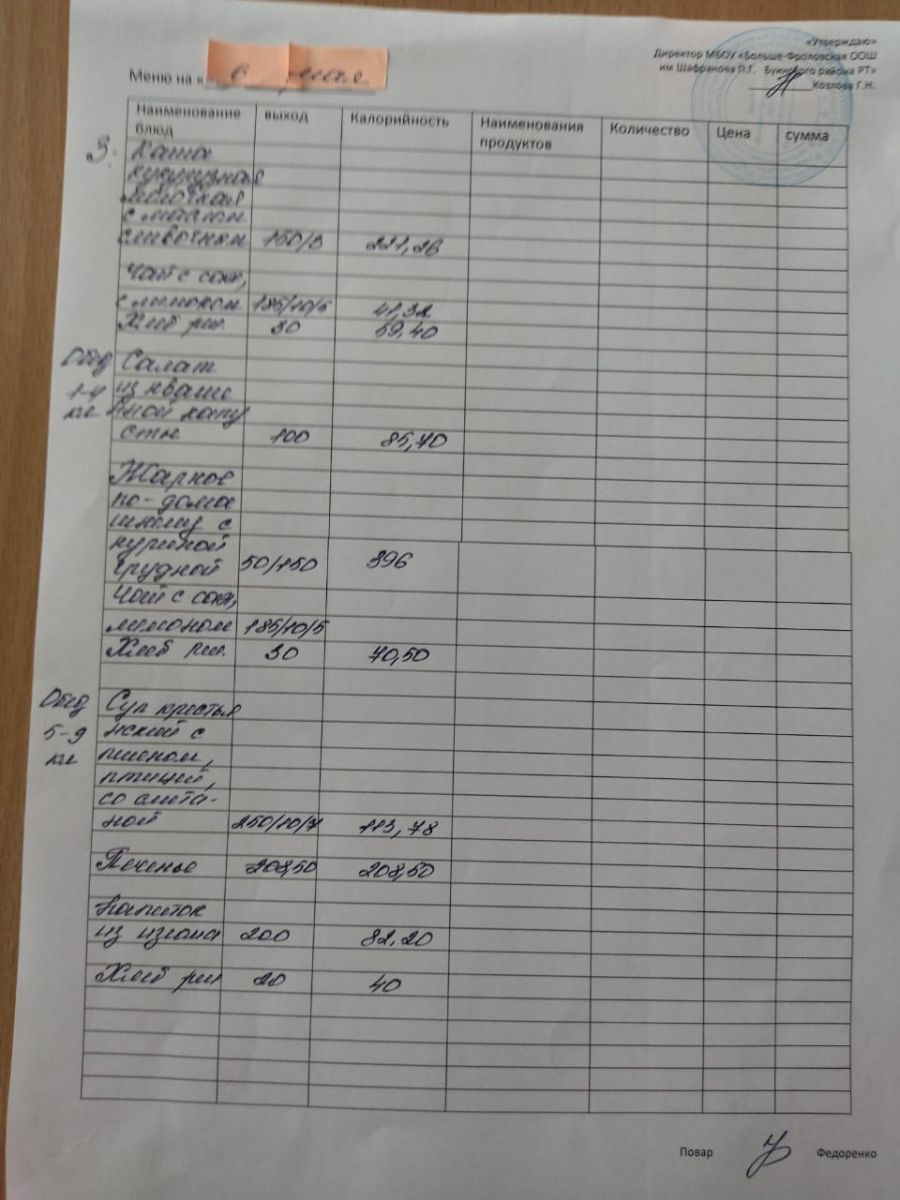 «Утверждаю»
Директор МБОУ «Больше-Фроловская ООШ
им Шафранова П.Г. Буинского района РТ»
Козлова Г.Н.
Меню на « 6 мая
Наименование блюд выход Калорийность Наименования продуктов Количество Цена сумма
З. Каша
кукурузная
молочная
с маслом
сливочным 150/5 221,26
Чай с сах,
с лимоном 185/10/5 41,32
Хлеб рж. 30 59,40
Обед Салат
1-4 из кваше
кл нной капу
сты 100 85,70
Жаркое
по-дома
шнему с
куриной
грудкой 50/150 396
Чай с сах,
лимоном 185/10/5
Хлеб рж. 30 70,50
Обед Суп крестья
5-9 нский с
кл пшеном,
птицей,
со смета-
ной 250/10/7 113,78
Печенье 208,50 208,50
Напиток
из изюма 200 82,20
Хлеб рж 20 40
Повар Федоренко